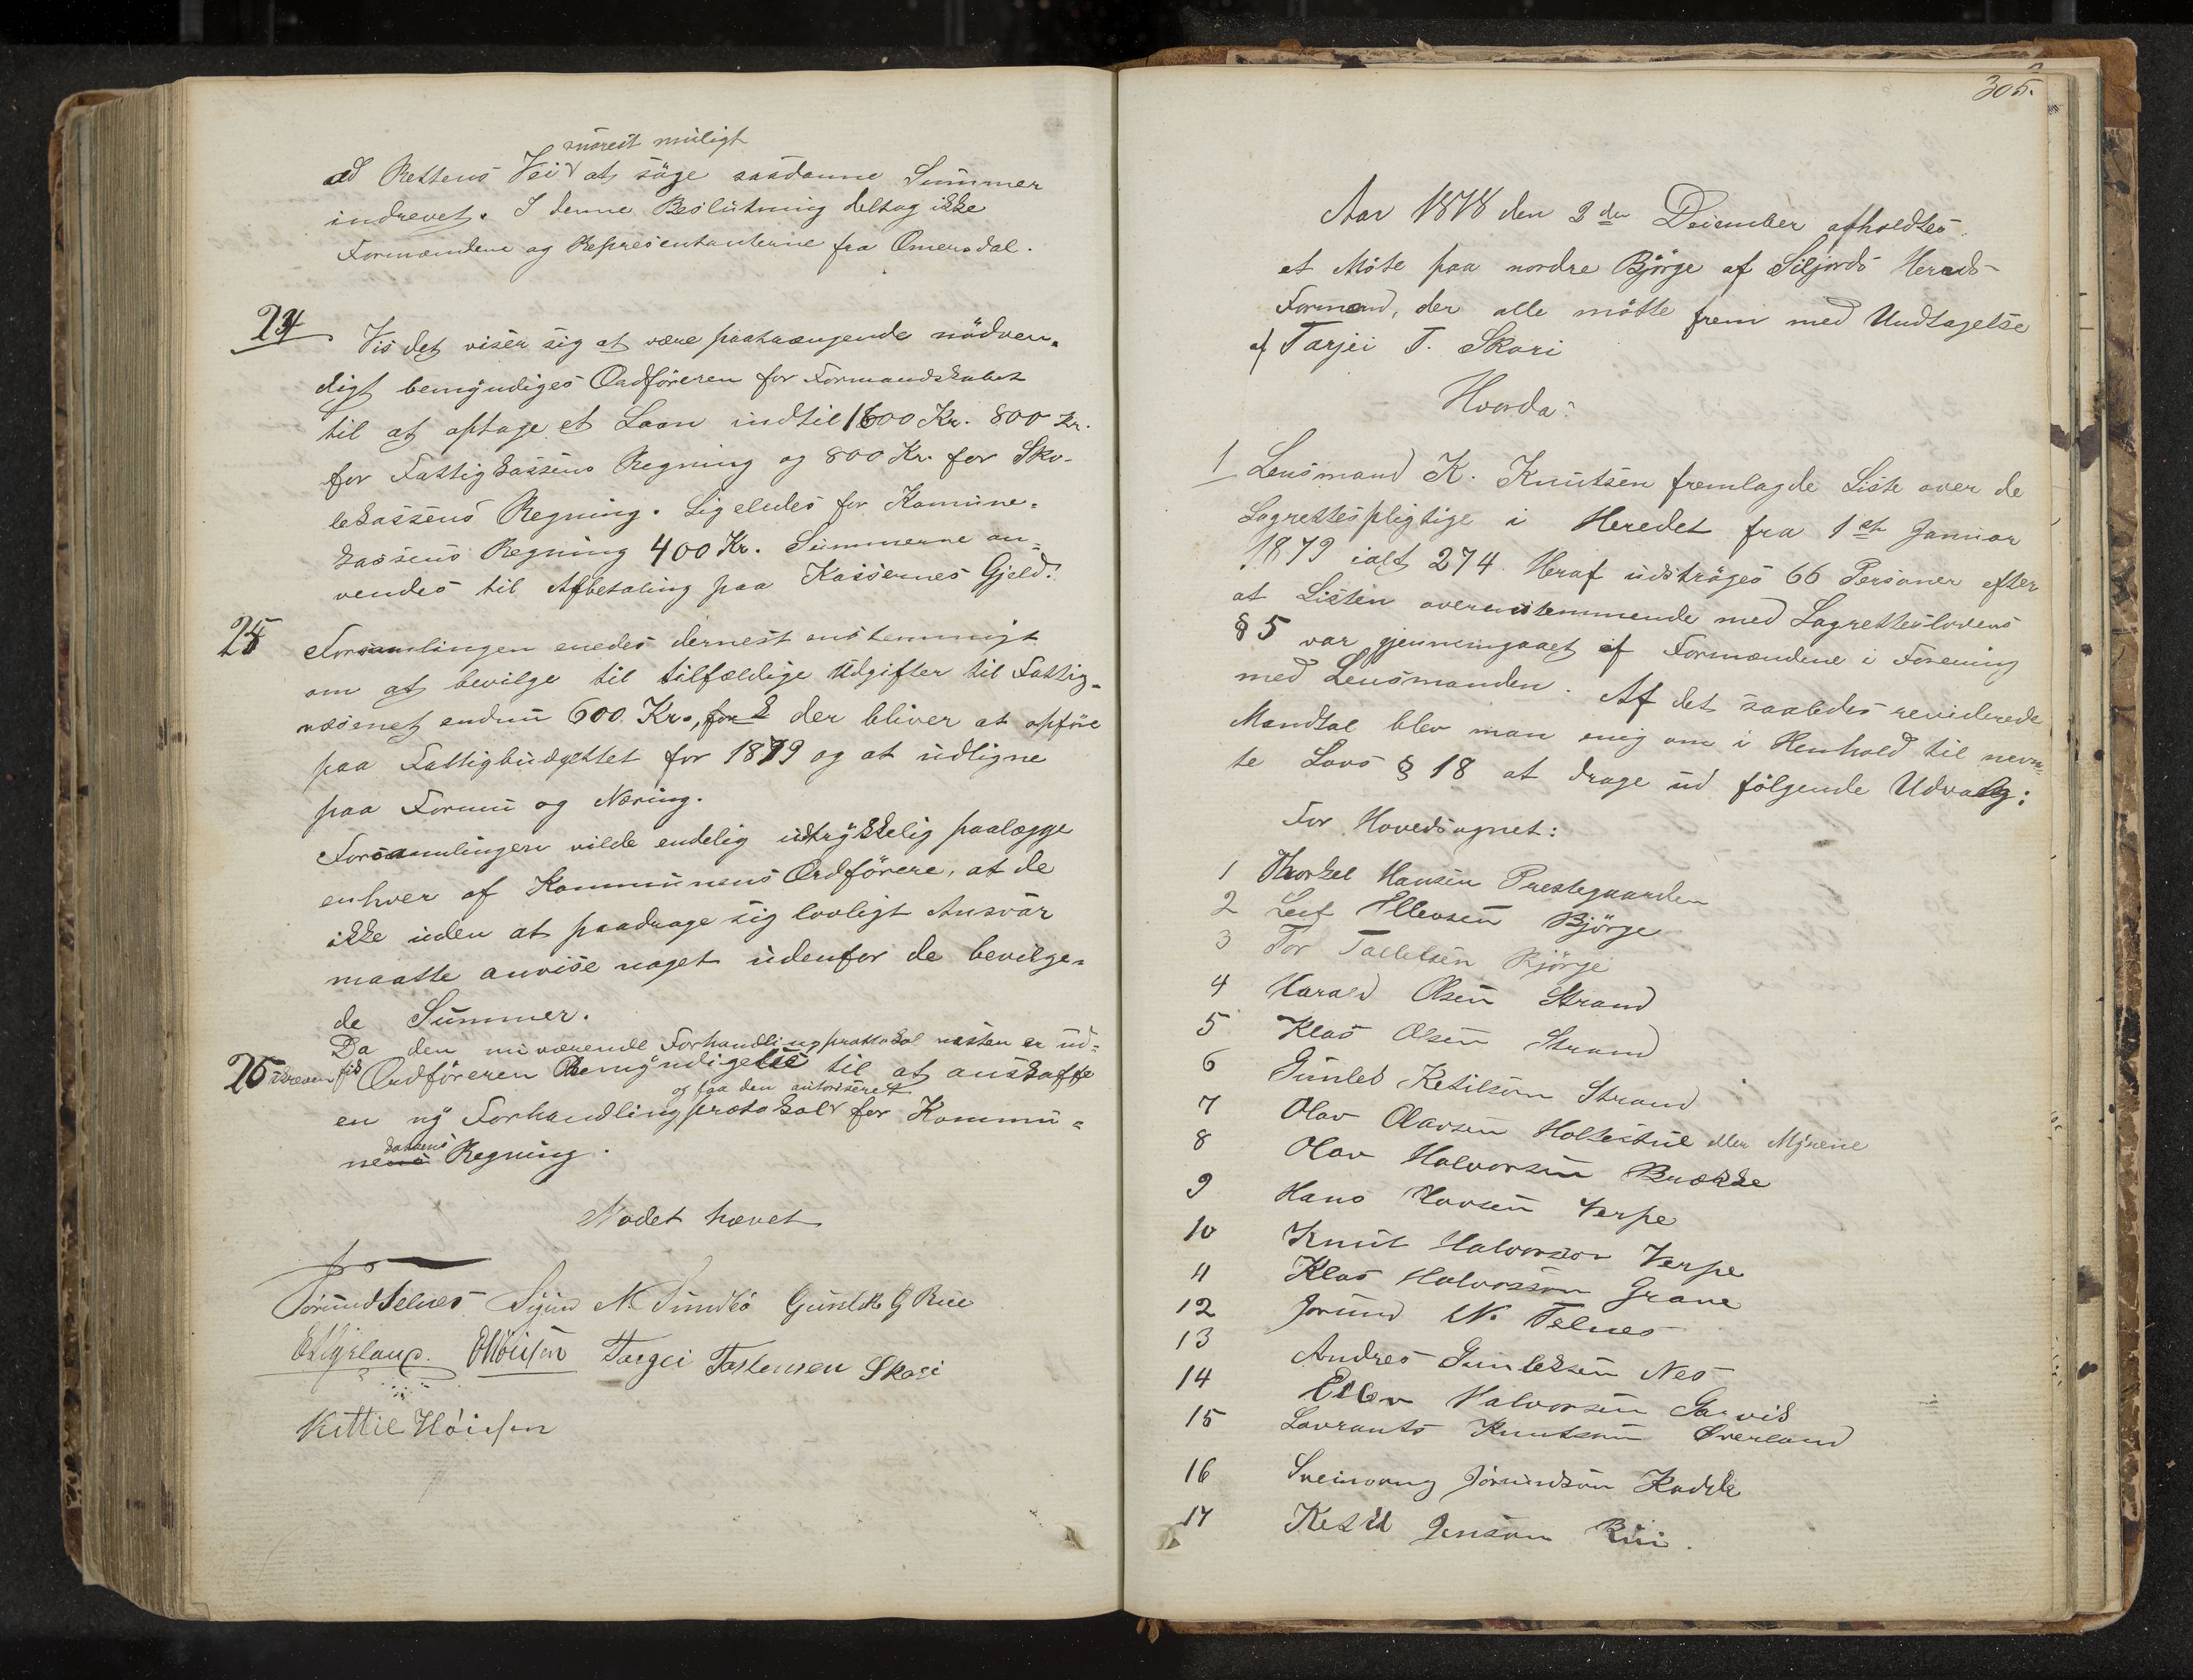 snarest muligt
ad Rettens Vei at söge saadanne Summer
indrevet. I denne Beslutning deltog ikke
Formændene og Representanterne fra Omensdal.
24
Vis det viser sig at være paatrængende nödven-
digt bemyndiges Ordföreren for Formandskabet
til at optage et Laan indtil 1600 Kr. 800 Kr.
for Fattigkassens Regning og 800 Kr. for Sko-
lekassens Regning. Ligeledes for Komune-
kassens Regning 400 Kr. Summerne an-
vendes til Afbetaling paa Kassernes Gjeld.
25 Forsamlingen enedes dernest enstemmigt
om at bevilge til tilfældige Udgifter til Fattig-
væsenet endnu 600 Kr., for der bliver at opföre
paa Fattigbudgettet for 1879 og at udligne
paa Formu og Næring.
Forsamlingen vilde endelig udtrykkelig paalægge
enhver af Kommunens Ordförere, at de
ikke uden at paadrage sig lovligt Ansvar
maatte anvise noget udenfor de bevilge-
de Summer.
Da den nuværende Forhandlingsprottokol næsten er ud-
26 skreven fik Ordföreren Bemyndigelse til at anskaffe
og faa den autoriseret
en ny Forhandlingsprotokol for Kommu-
kassens
nens Regning.
Mödet hævet
Jörund Telnes Sigurd N Sundbö Gunlek G Rue
Targei Tostensen Skori
Kittil Höiesen
305.
Aar 1878 den 3die December afholdtes
et Möte paa nordre Björge af Siljords Hereds-
Formend, der alle mötte frem med Undtagelse
af Tarjei T. Skori
Hvorda:
1 Lensmand K. Knutsen fremlagde Liste over de
Lagrettespligtige i Heredet fra 1ste Januar
1879 ialt 274. Heraf udströges 66 Personer efter
at Listen overenstemmende med Lagretteslovens
§ 5 var gjennemgaaet af Formændene i Forening
med Lensmanden. Af det saaledes reviderede
Mandtal blev man enig om i Henhold til nevn-
te Lovs § 18 at drage ud fölgende Udvalg:
For Hovedsognet:
1 Thorkel Hansen Prestegaarden
2 Leif Ellevsen Björge
3 Tor Tallefsen Björge
4 Harald Olsen Strand
5 Klas Olsen Strand
6 Gunleb Ketilson Strand
7 Olav Olavsen Holtestul eller Myrene
8 Olav Halvorsen Brække
9 Hans Havsen Verpe
10 Knut Halvorson Verpe
11 Klas Halvorson Grave
12 Jorund N. Telnes
13 Andres Gunleksen Nes
14 Ellev Halvorsen Garvik
15 Lavrants Knutson Överland
16 Sveinung Jörundson Kodde
17 Ketil Jenson Rui.